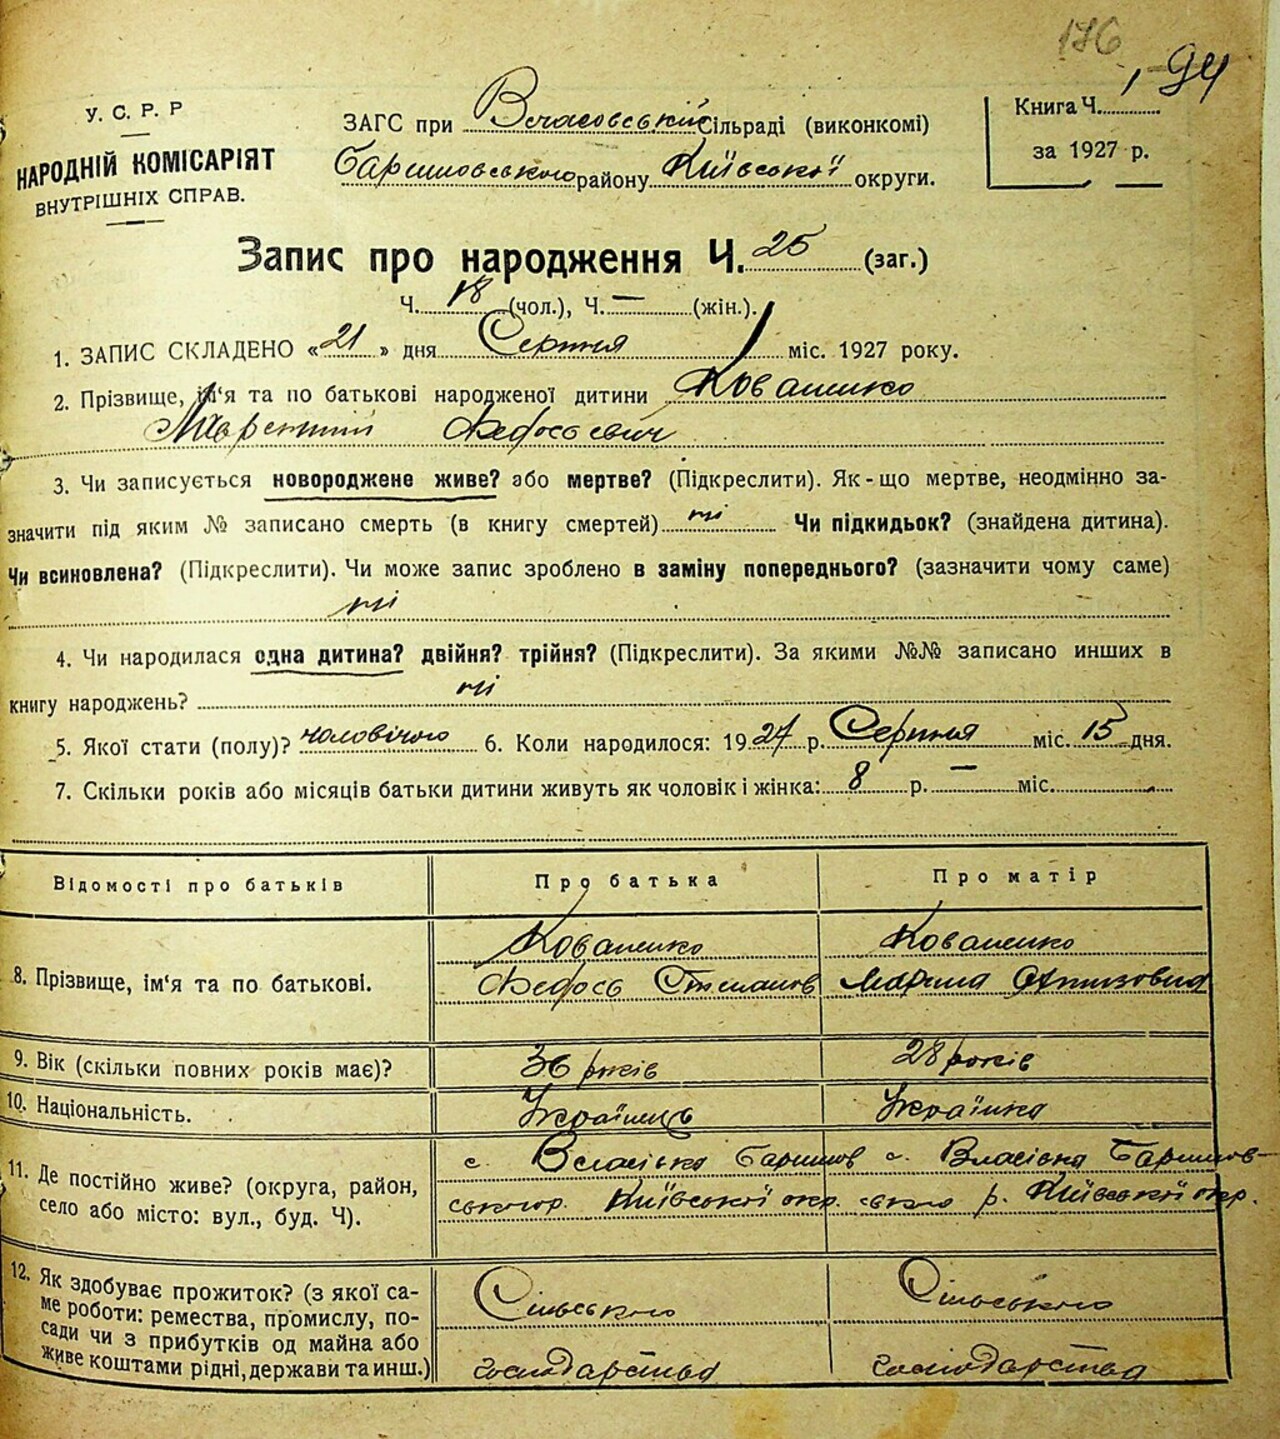 176
94
У. С. Р. Р
НАРОДНІЙ КОМІСАРІЯТ
ВНУТРІШНІХ СПРАВ.
ЗАГС при Власовській Сільраді (виконкомі)
Баришовського району Київської округи.
Книга Ч.
за 1927 р.
Запис про народження Ч. 25 (заг.)
Ч. 18 (чол.), Ч. — (жін.).
1. ЗАПИС СКЛАДЕНО «21» дня Серпня міс. 1927 року.
2. Прізвище, ім'я та по батькові народженої дитини Коваленко
Федосьевич
3. Чи записується новороджене живе? або мертве? (Підкреслити). Як-що мертве, неодмінно за-
значити під яким № записано смерть (в книгу смертей) ні Чи підкидьок? (знайдена дитина).
Чи всиновлена? (Підкреслити). Чи може запис зроблено в заміну попереднього? (зазначити чому саме)
ні
4. Чи народилася одна дитина? двійня? трійня? (Підкреслити). За якими №№ записано инших в
книгу народжень? ні
5. Якої стати (полу)? чоловічого 6. Коли народилось: 1927 р. Серпня міс. 15 дня.
7. Скільки років або місяців батьки дитини живуть як чоловік і жінка: 8 р. — міс.
Відомості про батьків Про батька Про матір
8. Прізвище, ім'я та по батькові.
Коваленко Коваленко
Федось Степанов Марина
9. Вік (скільки повних років має)? 36 років 28 років
10. Національність. Українець Українка
11. Де постійно живе? (округа, район,
село або місто: вул., буд. Ч).
с. Власівка Баришов с. Власівка Баришов-
ського р. Київської окр. ського р. Київської окр.
12. Як здобуває прожиток? (з якої са-
ме роботи: ремества, промислу, по-
сади чи з прибутків од майна або
живе коштами рідні, держави та инш.)
Сільського Сільського
господарства господарства